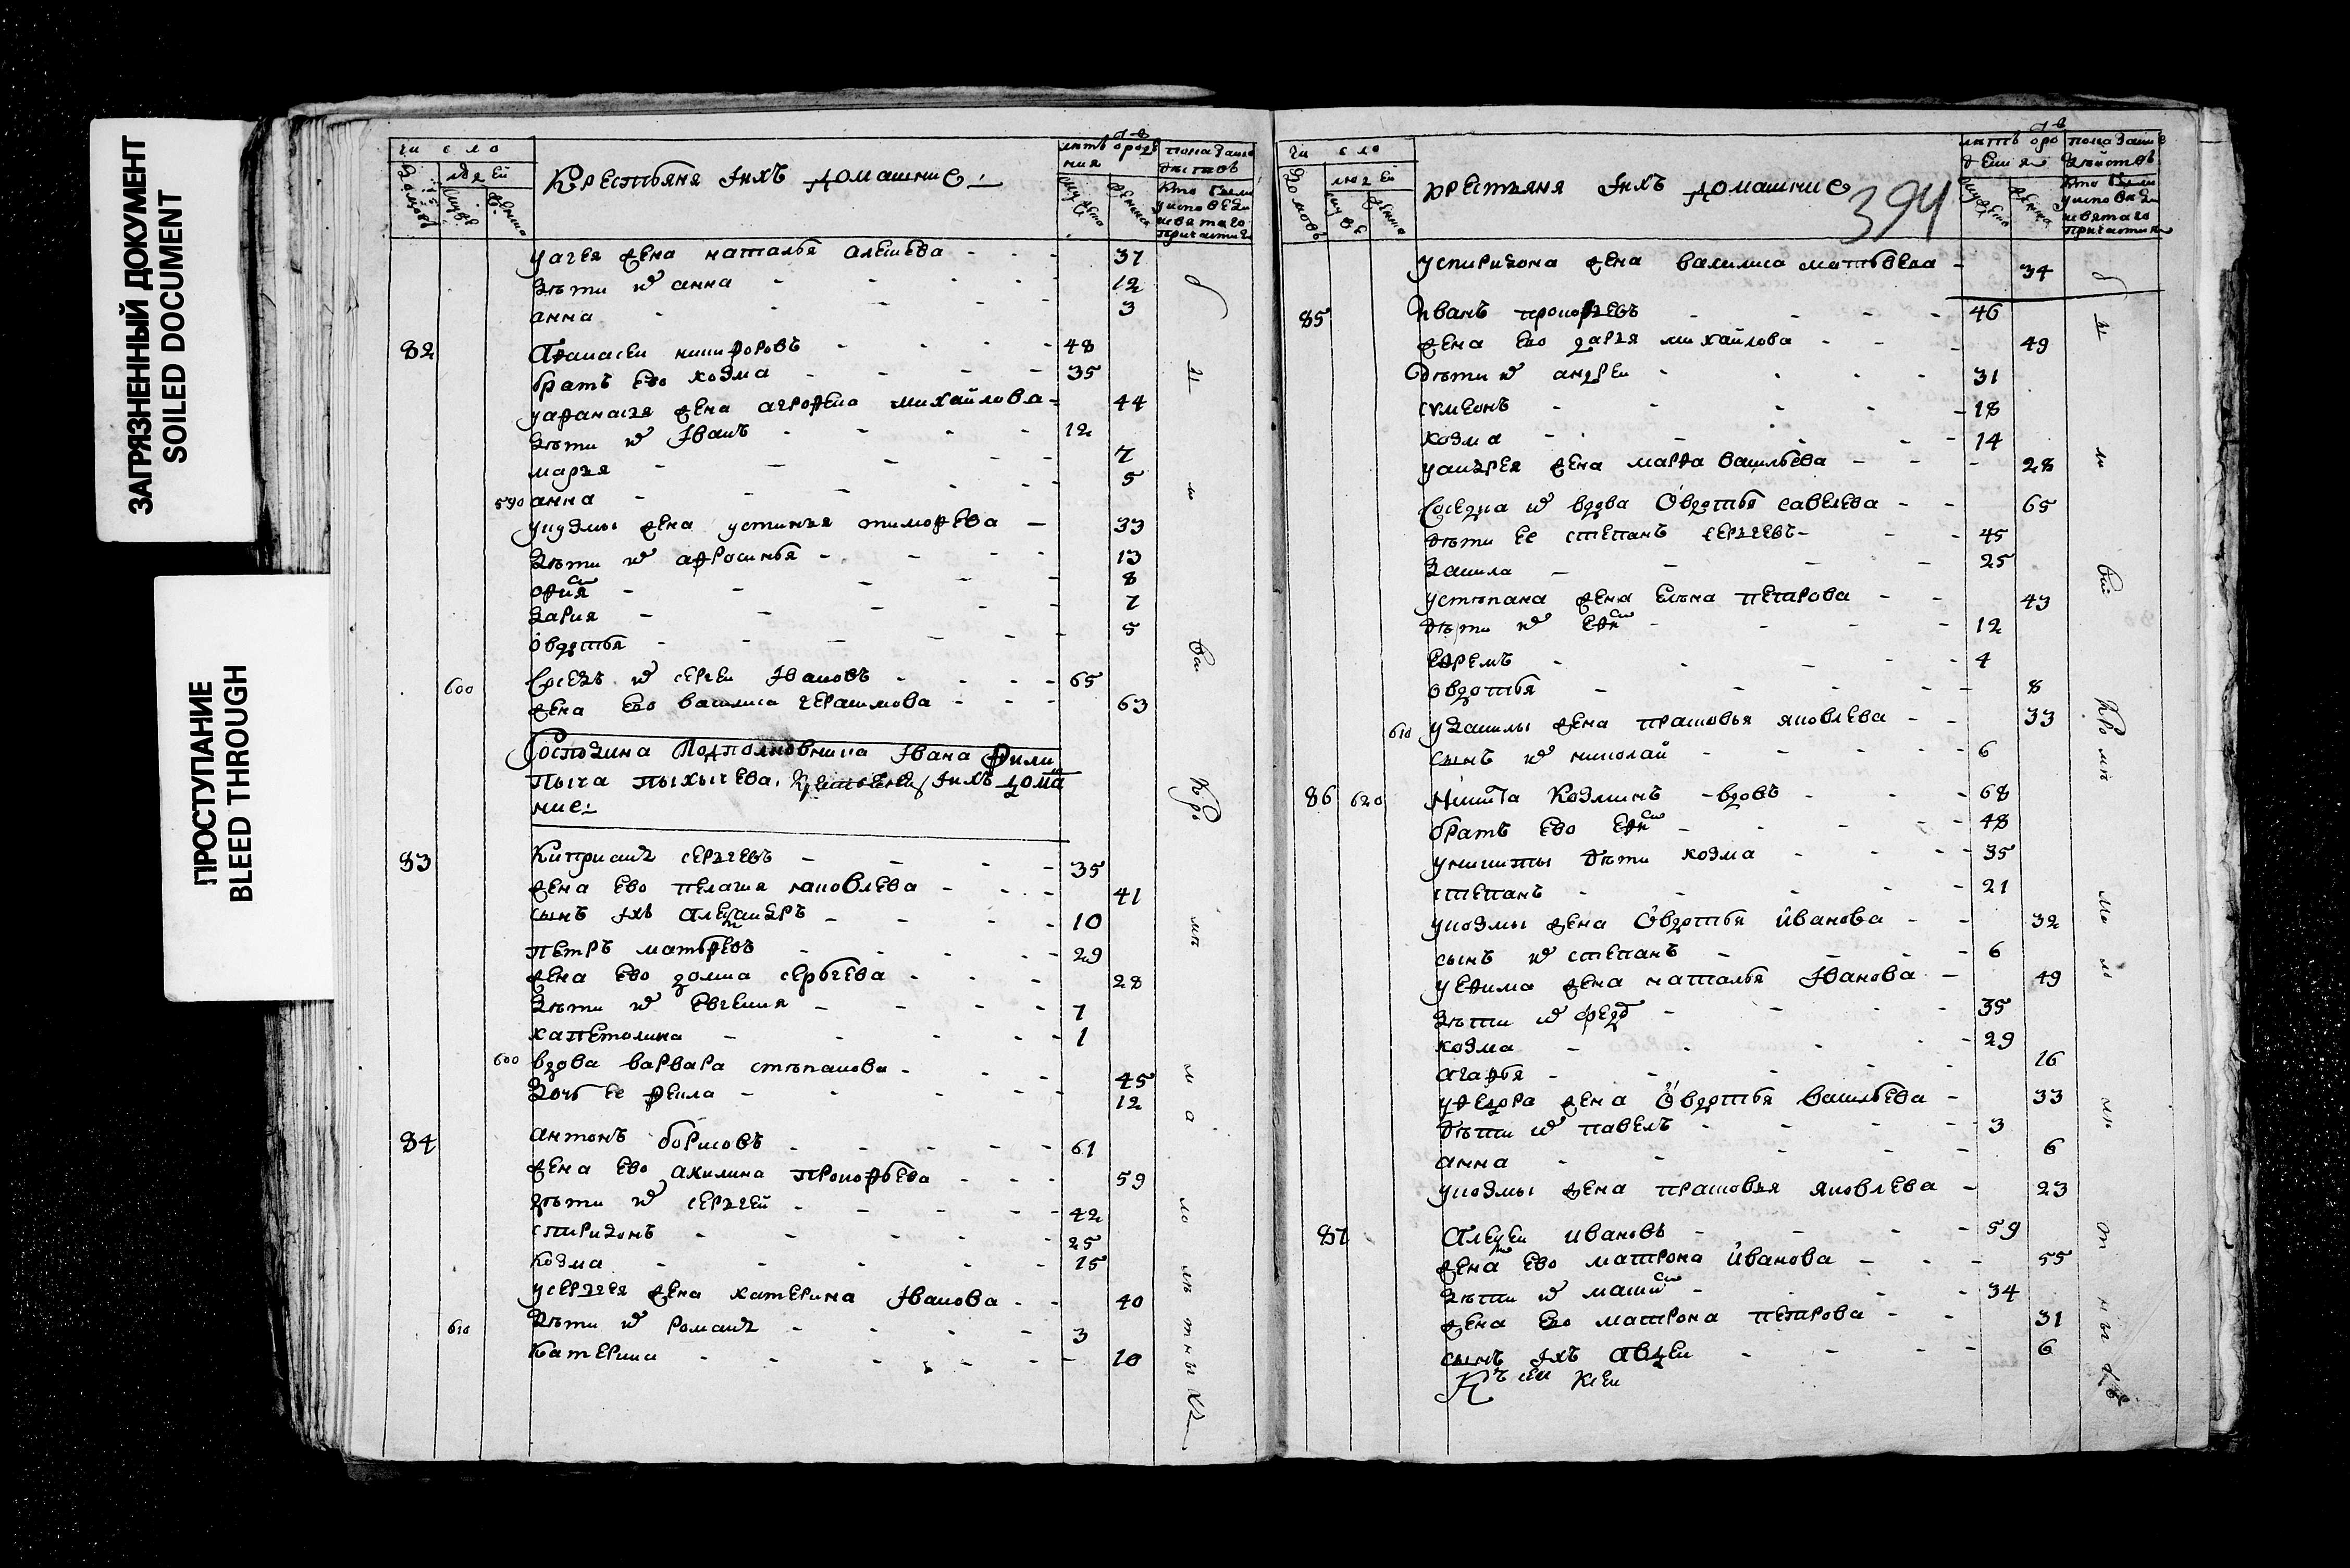 ЗАГРЯЗНЕННЫЙ ДОКУМЕНТ
SOILED DOCUMENT
ПРОСТУПАНИЕ
BLEED THROUGH
чи с ло
людей
Крестьяня Iихъ домашние
лѣтъ от рож
ния
мужеска
женска
показание
действъ
кто были
у исповеди
и святаго
причастия
у агея жена наталья алеѯеева - - - 37
дѣти их анна - - - 12
анна - - - 3
82 Афанасеи никифоровъ - - - 48
братъ ево козма - - - 35
у афанасья жена агрофена михайлова - 44
дѣти их Iванъ - - - 12
марья - - - 7
590 анна - - - 5
у кузмы жена устинья тимофѣева - 33
дѣти их афросинья - - - 13
офимия - - - 8
дария - - - 7
овдотья - - - 5
600 Сосѣдъ их сергеи Iвановъ - - - 65
жена ево василиса герасимова - - - 63
Господина Подполковника Iвана Фили
пыча пыхычева, крестьяня Iихъ дома
ние
83 Киприанъ сергеевъ - - - 35
жена ево пелагия яковлева - - - 41
сынъ Iхъ Алеѯандръ - - - 10
петръ матвѣевъ - - - 29
жена ево домна сергѣева - - - 28
дѣти их евгения - - - 7
капетолина - - - 1
600 вдова варвара стѣпанова - - - 45
дочь ее фекла - - - 12
84 антонъ борисовъ - - - 61
жена ево акилина прокофьева - - - 59
дѣти их сергей - - - 42
спиридонъ - - - 25
козма - - - 15
у сергея жена катерина Iванова - - 40
610 дѣти их романъ - - - 3
катерина - - - 10
чи с ло
людей
крестьяня Iихъ домашние
394
лѣтъ от ро
дения
мужеска
женска
показание
действъ
кто были
у исповеди
и святаго
причастия
у спиридона жена василиса матвѣева - 34
85 Иванъ прокофьевъ - - - 46
жена ево дарья михайлова - - - 49
дѣти их андреи - - - 31
сѵмеонъ - - - 18
козма - - - 14
у андрея жена марфа васильева - - - 28
Соседка их вдова Овдотья савелева - - 65
дѣти ее степанъ сергеевъ - - - 45
данила - - - 25
у стѣпана жена елена петрова - - 43
дѣти их ефим - - - 12
ефремъ - - - 4
овдотья - - - 8
610 у данилы жена прасковья яковлева - - 33
сынъ их николай - - - 6
86 620 Никита Козминъ - вдовъ - - - 68
братъ ево ефим - - - 48
у никиты дѣти козма - - - 35
степанъ - - - 21
у козмы жена Овдотья иванова - - 32
сынъ их степанъ - - - 6
у ефима жена наталья Iванова - 49
дѣти их федо - - - 35
козма - - - 29
агафья - - - 16
у федора жена Овдотья васильева - 33
дѣти их павелъ - - - 3
анна - - - 6
у козмы жена прасковья яковлева - 23
87 Алеѯеи ивановъ - - - 59
жена ево матрона иванова - - - 55
дѣти их маѯим - - - 34
жена ево матрона петрова - - 31
сынъ Iхъ Авдеи - - - 6